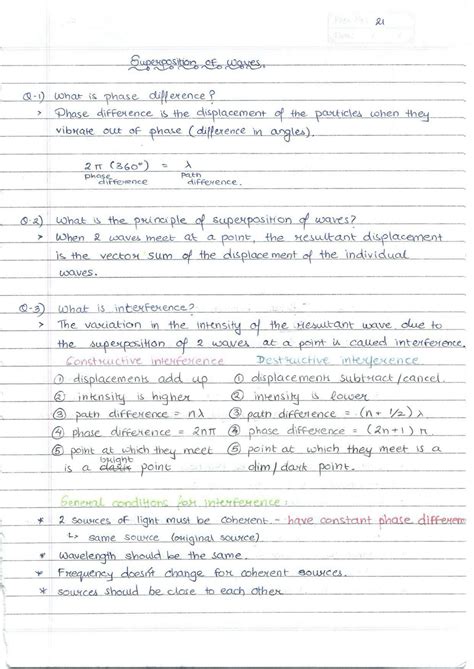 21
Superposition of waves.
Q-1) What is phase difference?
> Phase difference is the displacement of the particles when they
vibrate out of phase (difference in angles).
2π (360°) = λ
phase difference path difference.
Q-2) What is the principle of superposition of waves?
> When 2 waves meet at a point, the resultant displacement
is the vector sum of the displacement of the individual
waves.
Q-3) What is interference?
> The variation in the intensity of the resultant wave due to
the superposition of 2 waves at a point is called interference.
Constructive interference Destructive interference
① displacements add up ① displacements subtract/cancel.
② intensity is higher ② intensity is lower
③ path difference = nλ ③ path difference = (n + 1/2) λ
④ phase difference = 2nπ ④ phase difference = (2n+1) π
⑤ point at which they meet ⑤ point at which they meet is a
is a bright point dim/dark point.
General conditions for interference:
* 2 sources of light must be coherent - have constant phase differen
↳ same source (original source)
* Wavelength should be the same.
* Frequency doesn't change for coherent sources.
* sources should be close to each other